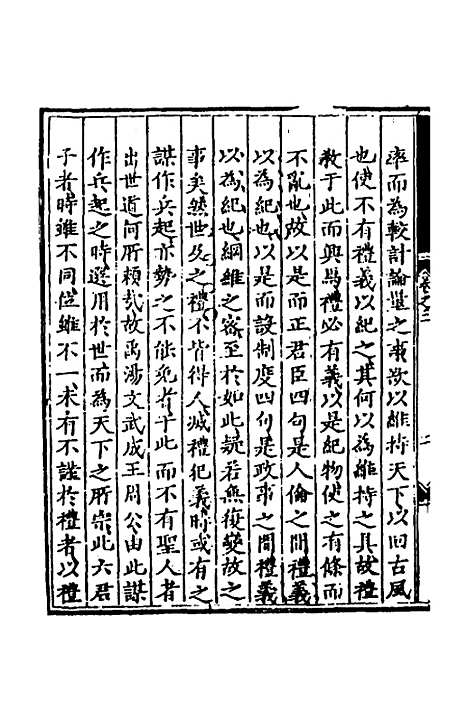 率而為較計論選之事欲以維持天下以回古風
也使不有禮義以紀之其何以為維持之具故禮
教于此而興焉禮必有義以是紀物使之有條而
不亂也故以是而正君臣四句是人倫之間禮義
以為紀也以是而設制度四句是政事之間禮義
以為紀也綱維之密至於如此疑若無復變故之
事矣然世及之禮不皆得人滅禮犯義時或有之
謀作兵起亦勢之不能免者于此而不有聖人者
出世道何所賴哉故禹湯文武成王周公由此謀
作兵起之時選用於世而為天下之所宗此六君
子者時雖不同位雖不一未有不謹於禮者以禮
卷之二
二